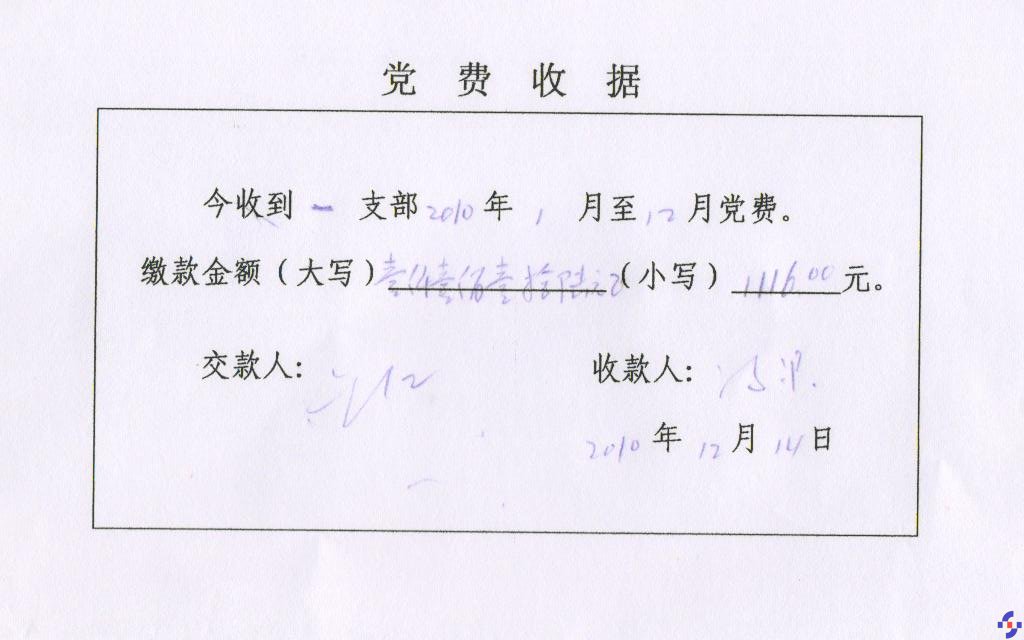 党费收据
今收到 一 支部 2010 年 1 月至 12 月党费。
缴款金额（大写）壹仟壹佰壹拾陆元（小写）1116.00 元。
交款人： 收款人：
2010 年 12 月 14 日